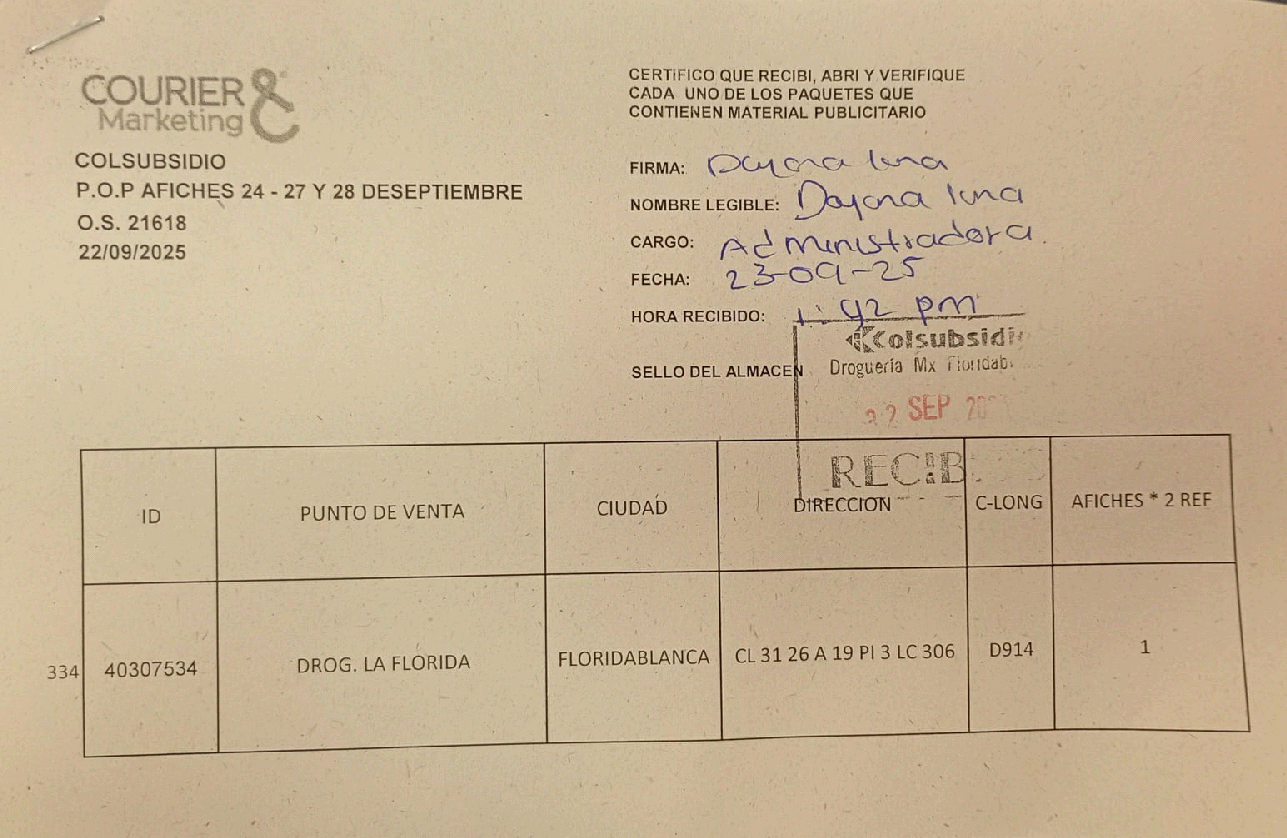 COURIER &
Marketing
COLSUBSIDIO
P.O.P AFICHES 24 - 27 Y 28 DESEPTIEMBRE
O.S. 21618
22/09/2025
CERTIFICO QUE RECIBI, ABRI Y VERIFIQUE
CADA UNO DE LOS PAQUETES QUE
CONTIENEN MATERIAL PUBLICITARIO
FIRMA: Dayana luna
NOMBRE LEGIBLE: Dayana luna
CARGO: Administradora.
FECHA: 23-09-25
HORA RECIBIDO: 1:42 pm
Colsubsidio
SELLO DEL ALMACEN Drogueria Mx Floridab
22 SEP 20
RECIB
ID PUNTO DE VENTA CIUDAD DIRECCION C-LONG AFICHES * 2 REF
334 40307534 DROG. LA FLORIDA FLORIDABLANCA CL 31 26 A 19 PI 3 LC 306 D914 1